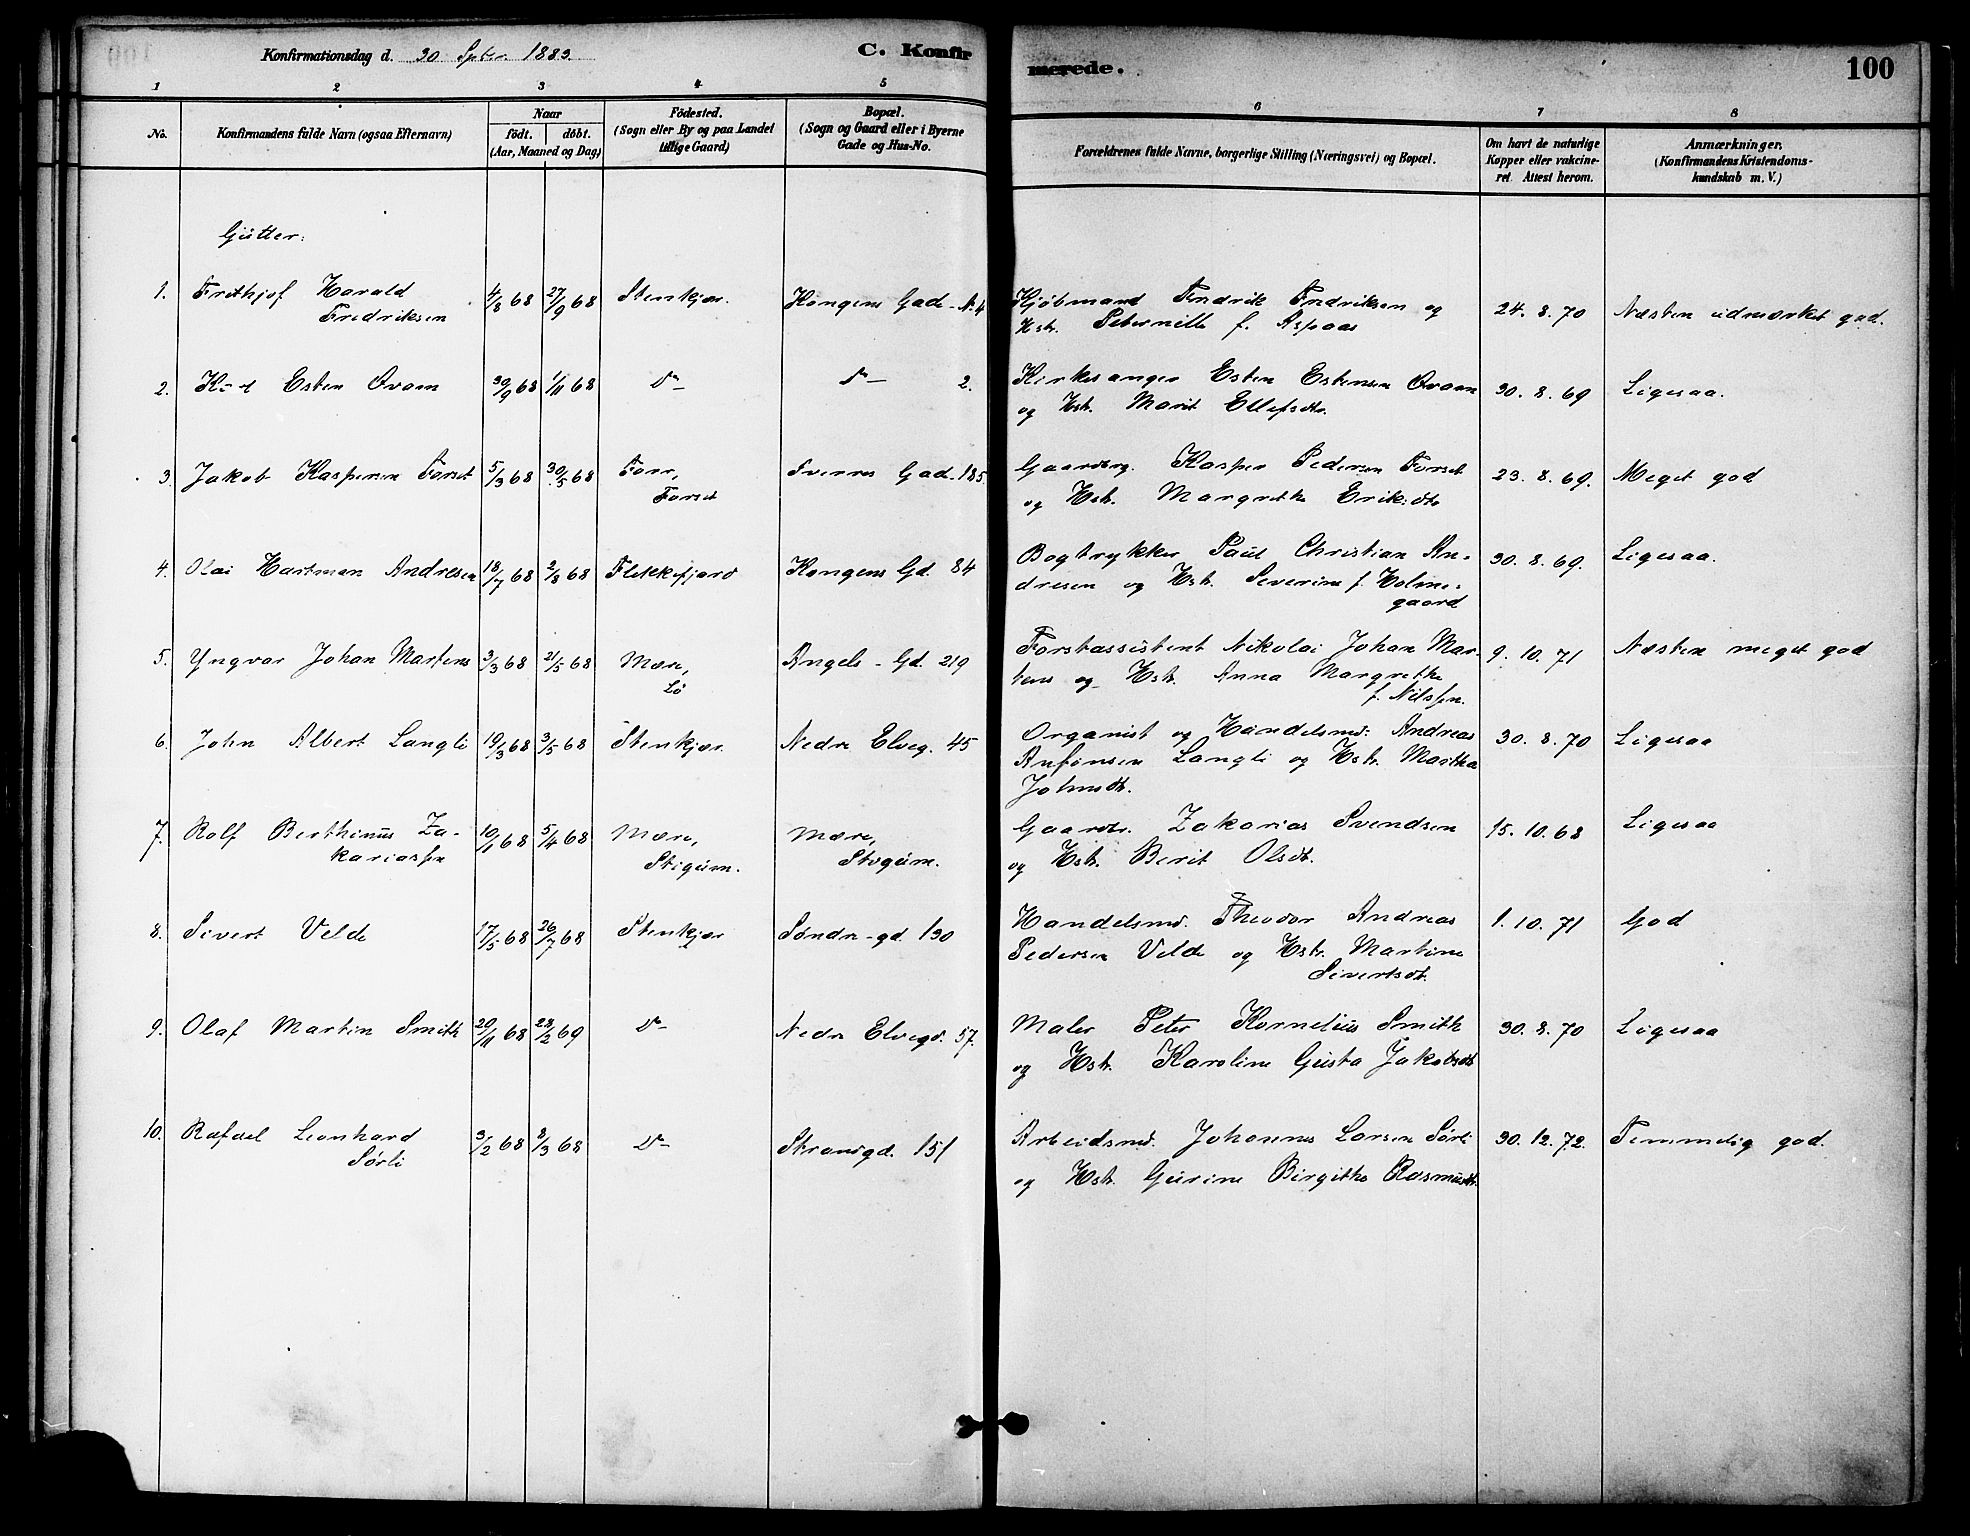 Konfirmationsdag d. 30 Septbr. 1883. C. Konfirmerede. 100
1 2 3 4 5 6 7 8
No. Konfirmandens fulde Navn (ogsaa Efternavn) Naar födt. döbt. (Aar, Maaned og Dag) Födested. (Sogn eller By og paa Landet tillige Gaard) Bopæl. (Sogn og Gaard eller i Byerne Gade og Hus-No. Forældrenes fulde Navne, borgerlige Stilling (Næringsvei) og Bopæl. Om havt de naturlige Kopper eller vakcineret. Attest herom. Anmærkninger. (Konfirmandens Kristendomskundskab m. V.)
Gutter:
1. Frithjof Harald 4/8 68 27/9 68 Stenkjær. Kongens Gade - N. 4 Kjøbmand Fredrik Fredriksen og 24. 8. 70 Næsten udmærket god.
Fredriksen Hstr. Peternille f. Aspaas
2. Knut Esten Ovam 30/9 68 1/11 68 Do Do 2. Kirkesanger Esten Estensen Ovam 30. 8. 69 Ligesaa.
og Hstr. Marit Ellefsdtr.
3. Jakob Kaspersen Forset 5/3 68 30/5 68 Forr, Sverres Gad. 185. Gaardbrg. Kasper Pedersen Forset 23. 8. 69. Meget god
Forset og Hstr. Margrethe Eriksdtr
4. Olai Hartman Andresen 18/7 68 2/8 68 Flekkefjord Kongens Gd. 84 Bogtrykker Paul Christian An- 30. 8. 69. Ligesaa.
dresen og Hstr. Severine f. Holme-
gaard
5. Yngvar Johan Martens 3/3 68 21/5 68 Mære, Angels - Gd. 219 Forstassistent Nikolai Johan Mar- 9. 10. 71 Næsten meget god
Lö tens og Hstr. Anna Margrethe
f. Nilssen.
6. John Albert Langli 19/3 68 3/5 68 Stenkjær Nedre Elveg. 45 Organist og Handelsmd. Andreas 30. 8. 70 Ligesaa
Anfinsen Langli og Hstr. Martha
Johnsdt.
7. Rolf Berthinus Za- 10/1 68 5/4 68 Mære, Mære, Gaardbr. Zakarias Svendsen 15. 10. 68 Ligesaa
kariassen Stigum. Stigum. og Hstr. Berit Olsdt.
8. Sivert Velde 17/5 68 26/7 68 Stenkjær Søndre - gd. 130 Handelsmd. Theodor Andreas 1. 10. 71 God
Pedersen Velde og Hstr. Martine
Sivertsdt.
9. Olaf Martin Smith 20/11 68 28/2 69 Do Nedre Elvegd. 57. Maler Peter Kornelius Smith 30. 8. 70 Ligesaa
og Hstr. Karoline Gusta Jakobsdt
10. Rafael Leonhard 3/2 68 8/3 68 Do Strandgd. 151 Arbeidsmd. Johannes Larsen Sørli 30. 12. 72. Temmelig god.
Sørli og Hstr. Gurine Birgithe Rasmusdt.